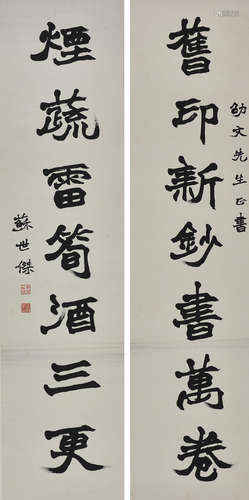 劭文先生正書
舊印新鈔書萬卷
煙蔬雷筍酒三更
蘇世傑